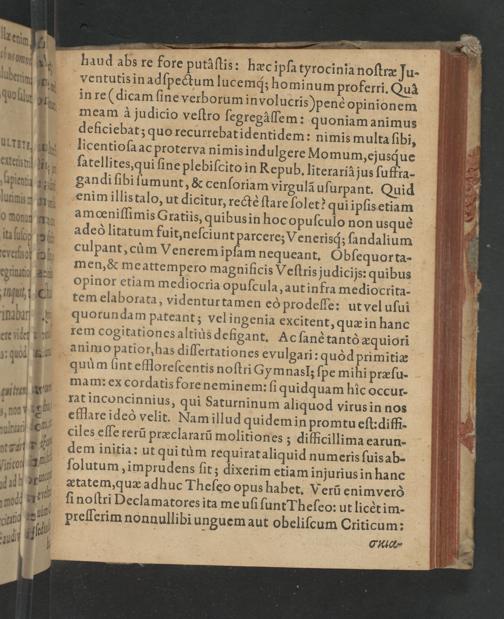 haud abs re fore putâstis: hæc ipsa tyrocinia nostræ Ju-
ventutis in adspectum lucemq́; hominum proferri. Quâ
in re (dicam sine verborum involucris) penè opinionem
meam à judicio vestro segregâssem: quoniam animus
deficiebat; quo recurrebat identidem: nimis multa sibi,
licentiosa ac proterva nimis indulgere Momum, ejusque
satellites, qui sine plebiscito in Repub. literariâ jus suffra-
gandi sibi sumunt, & censoriam virgulã usurpant. Quid
enim illis talo, ut dicitur, rectè stare solet? qui ipsis etiam
amœnissimis Gratiis, quibus in hoc opusculo non usquè
adeò litatum fuit, nesciunt parcere; Venerisq́; sandalium
culpant, cùm Venerem ipsam nequeant. Obsequor ta-
men, & me attempero magnificis Vestris judicijs: quibus
opinor etiam mediocria opuscula, aut infra mediocrita-
tem elaborata, videntur tamen eò prodesse: ut vel usui
quorundam pateant; vel ingenia excitent, quæ in hanc
rem cogitationes altiùs defigant. Ac sanè tantò æquiori
animo patior, has dissertationes evulgari: quòd primitiæ
quùm sint efflorescentis nostri GymnasI; spe mihi præsu-
mam: ex cordatis fore neminem: si quidquam hîc occur-
rat inconcinnius, qui Saturninum aliquod virus in nos
efflare ideò velit. Nam illud quidem in promtu est: diffi-
ciles esse rerũ præclararũ molitiones; difficillima earun-
dem initia: ut qui tùm requirat aliquid numeris suis ab-
solutum, imprudens sit; dixerim etiam injurius in hanc
ætatem, quæ adhuc Theseo opus habet. Verũ enimverò
si nostri Declamatores ita me usi sunt Theseo: ut licèt im-
presserim nonnullibi unguem aut obeliscum Criticum:
σκια-